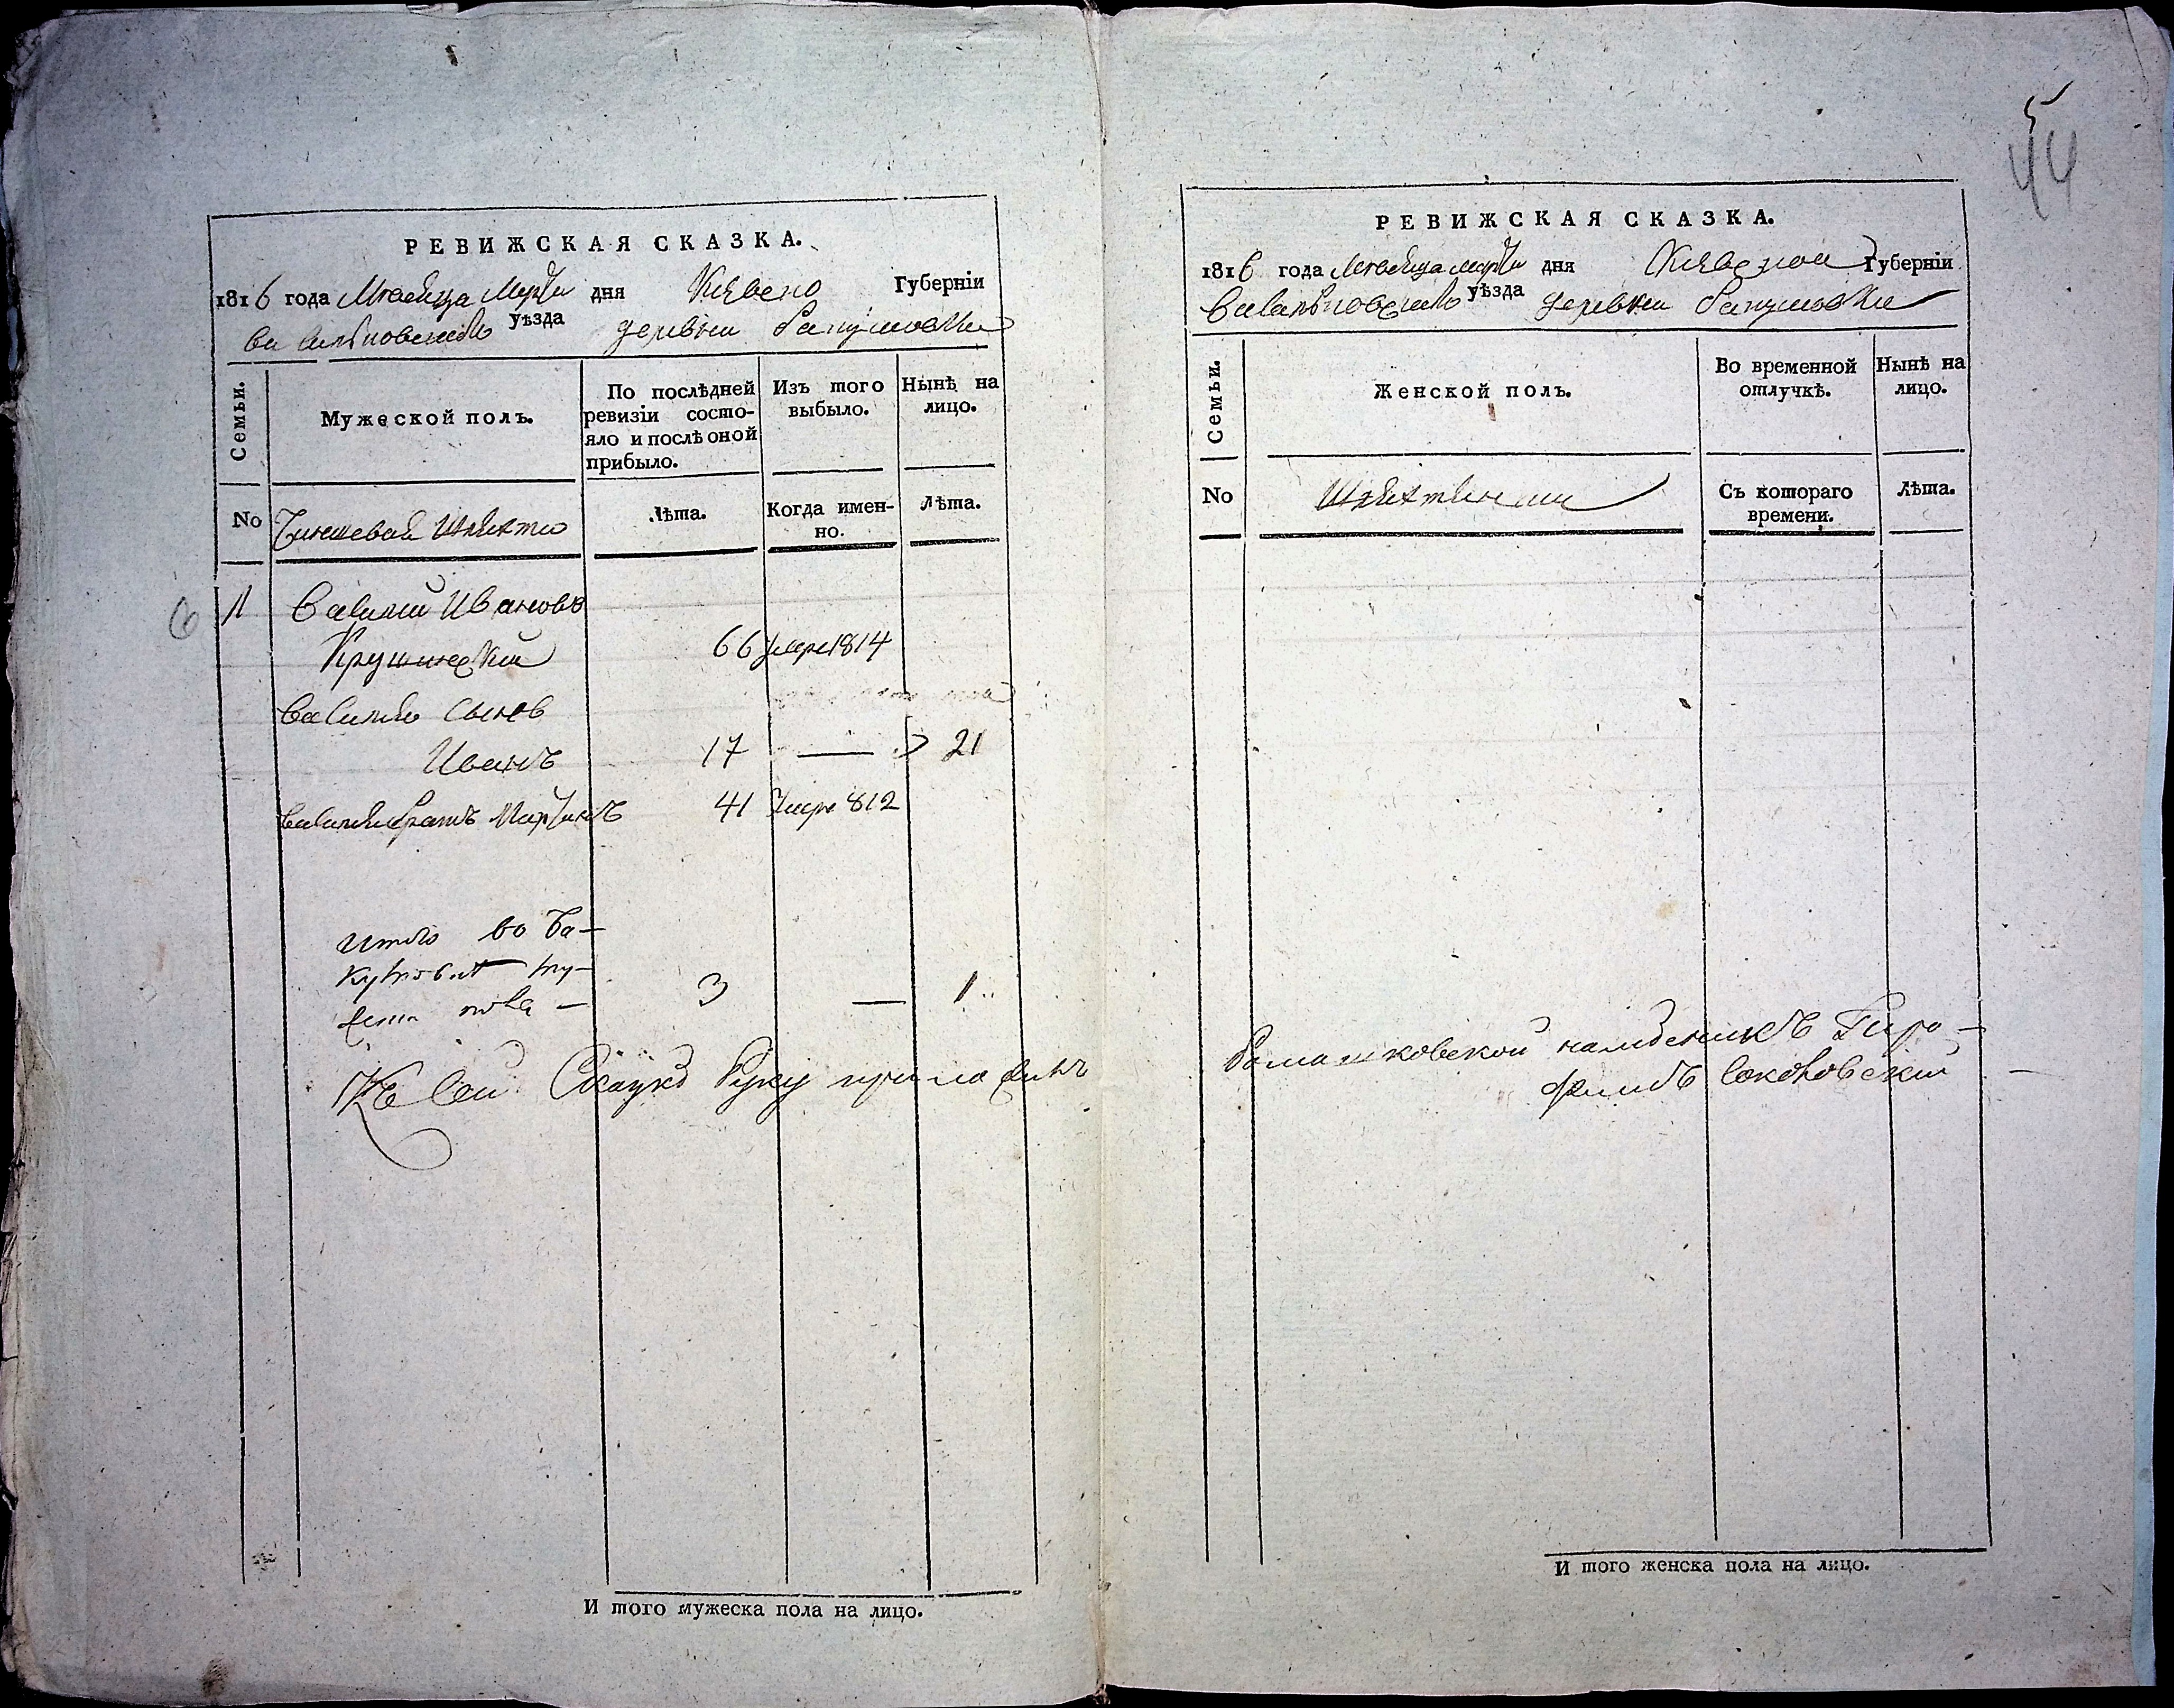 5
44
РЕВИЖСКАЯ СКАЗКА.
1816 года Месяца Марта дня Киевско Губерніи
Васильковского уѣзда деревни
Семьи.
Мужеской полъ.
По послѣдней ревизіи состо-
яло и послѣ оной
прибыло.
Изъ того
выбыло.
Нынѣ на
лицо.
No
Чиншевая Шляхта
Лѣта.
Когда имен-
но.
Лѣта.
6
1 Василий Ивановъ
Крушинский 66 умре 1814
Василия Сынъ
Иванъ 17 — 21
Василия братъ Мартинъ 41 Умре 812
Итого во
му-
пола — 3 — 1
Къ сей Сказке Руку приложилъ
РЕВИЖСКАЯ СКАЗКА.
1816 года Месяца марта дня Киевской Губерніи
Васильковского уѣзда деревни
Семьи.
Женской полъ.
Во временной
отлучкѣ.
Нынѣ на
лицо.
No
Шляхтянки
Съ котораго
времени.
Лѣта.
Ромашковской
Соколовский
И того мужеска пола на лицо.
И того женска пола на лицо.